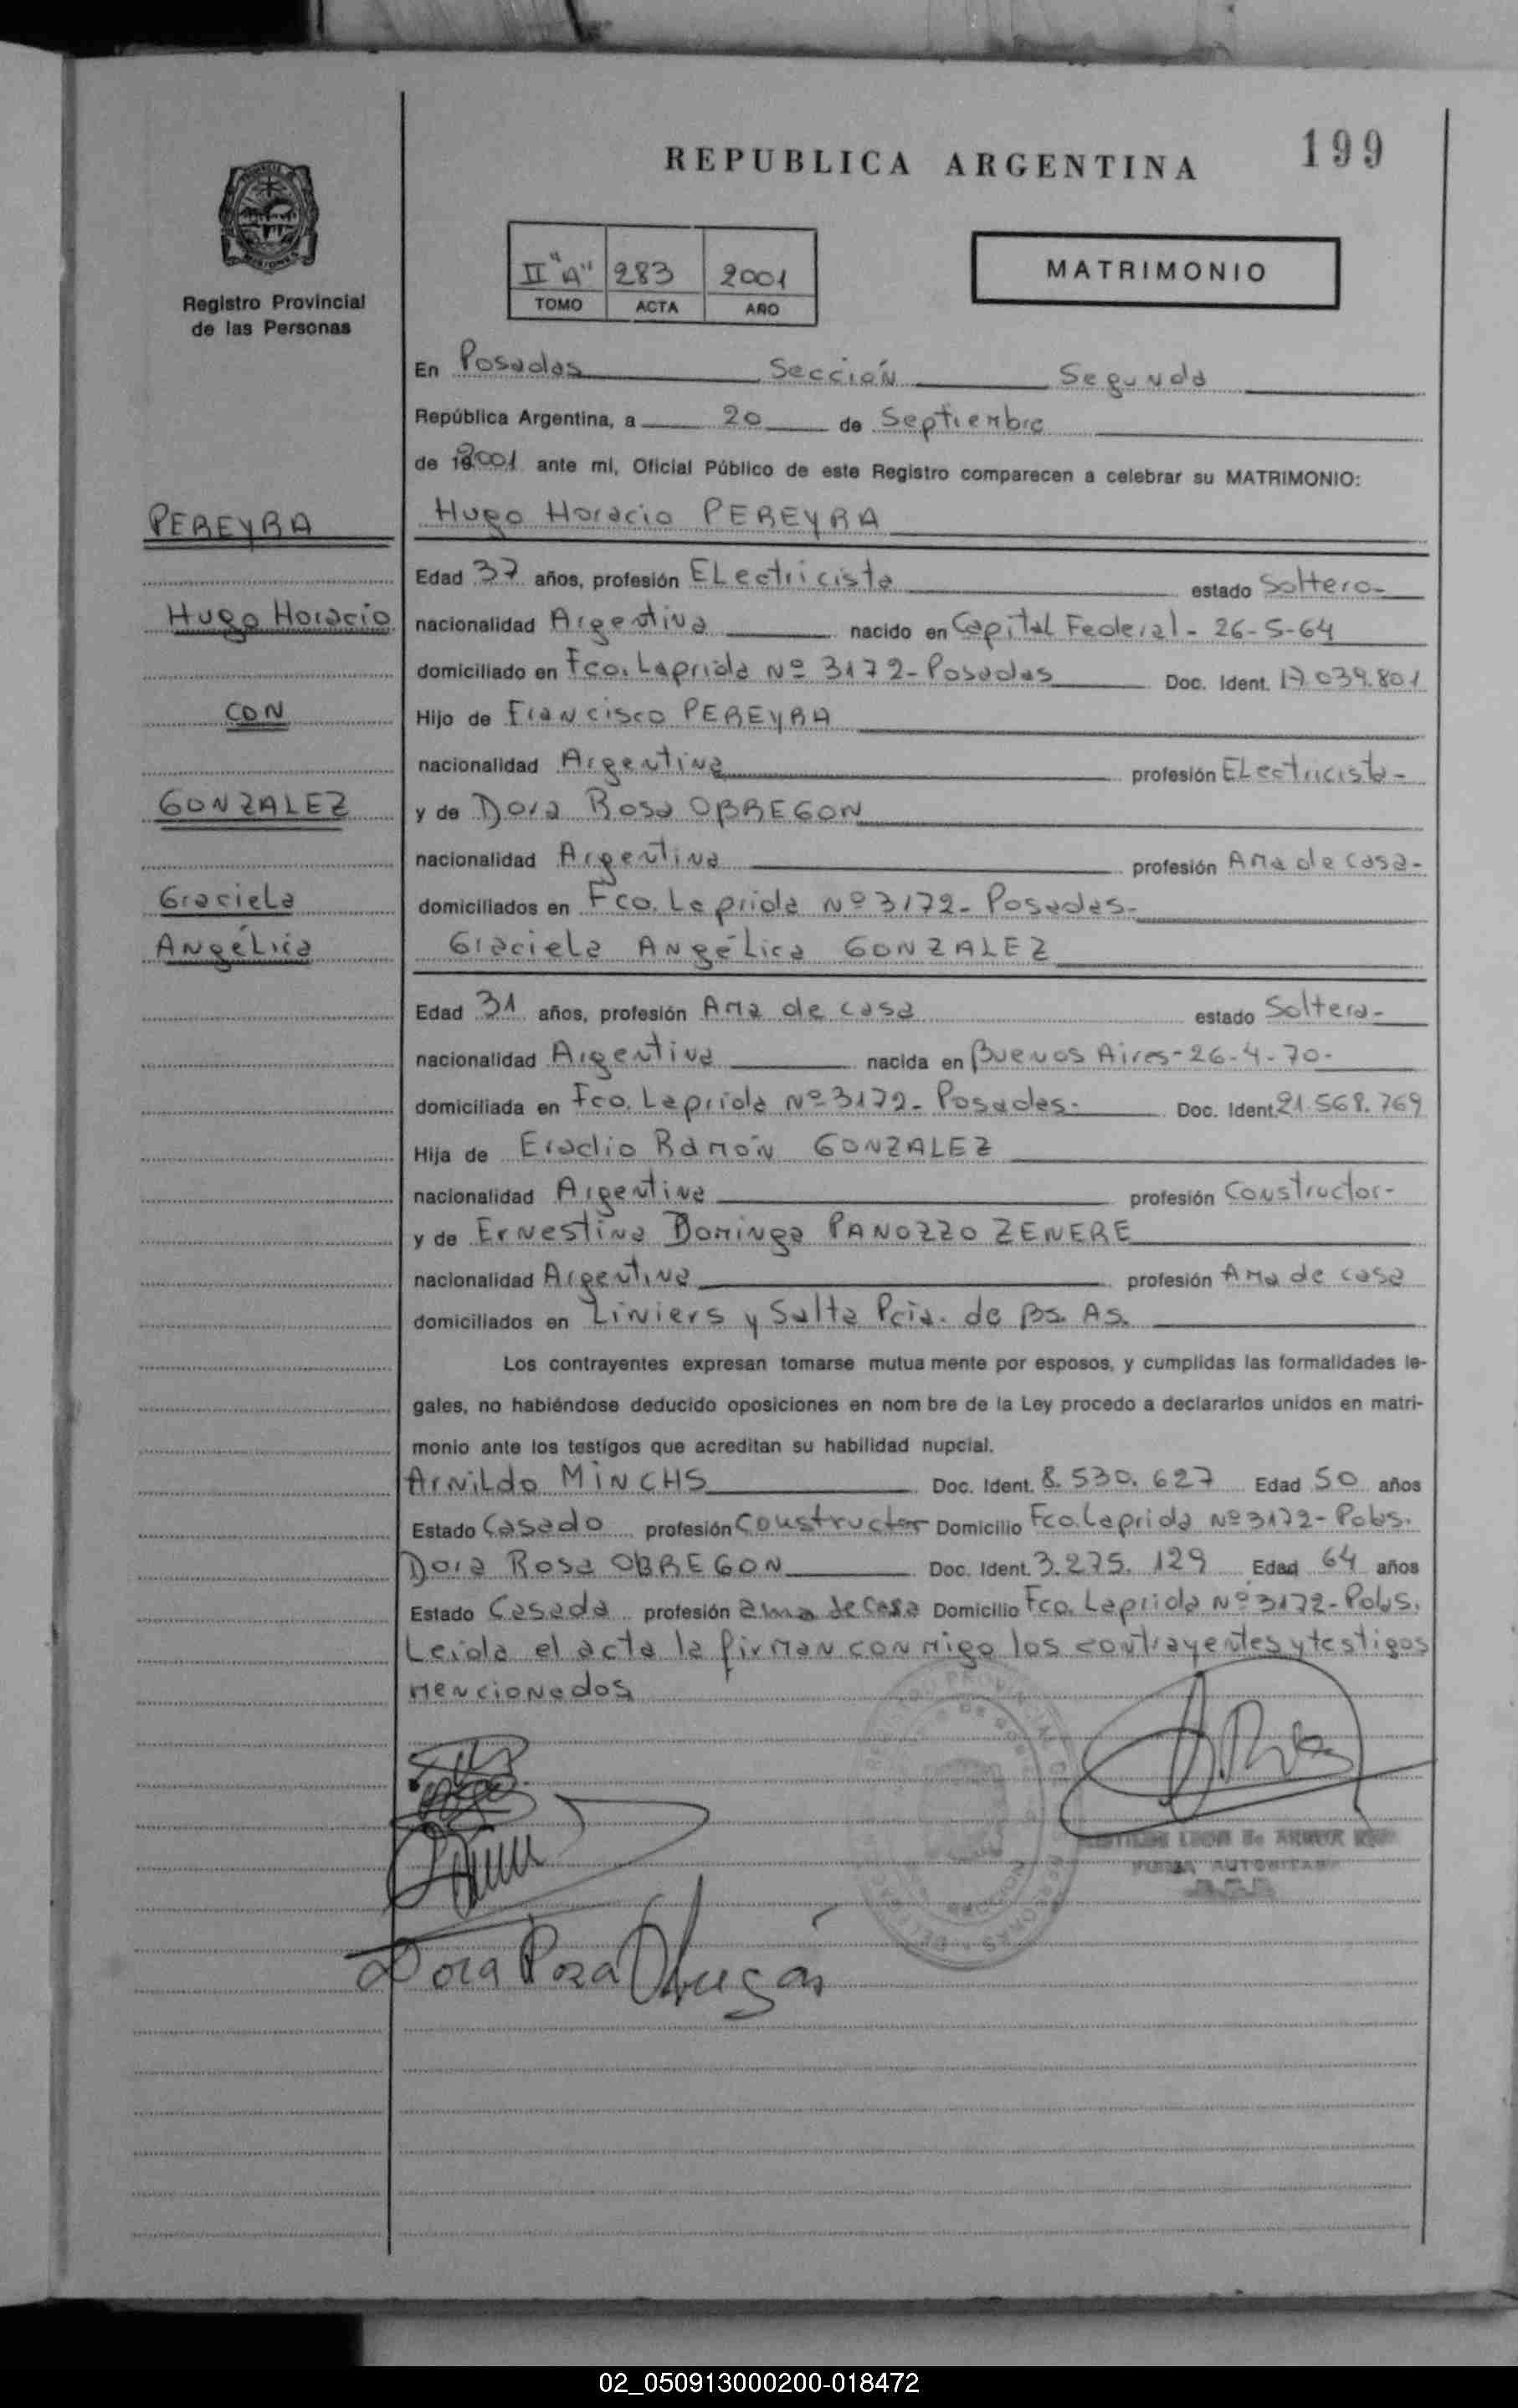 REPUBLICA ARGENTINA
199
Registro Provincial
de las Personas
II "A" 283 2001
TOMO ACTA AÑO
MATRIMONIO
En Posadas Sección Segunda
República Argentina, a 20 de Septiembre
de 2001 ante mi, Oficial Público de este Registro comparecen a celebrar su MATRIMONIO:
PEREYRA
Hugo Horacio PEREYRA
Edad 37 años, profesión Electricista estado Soltero-
Hugo Horacio
nacionalidad Argentina nacido en Capital Federal - 26-5-64
domiciliado en Fco. Laprida Nº 3172- Posadas Doc. Ident. 17.039.801
CON
Hijo de Francisco PEREYRA
nacionalidad Argentina profesión Electricista-
GONZALEZ
y de Dora Rosa OBREGON
nacionalidad Argentina profesión Ama de casa-
Graciela
domiciliados en Fco. Laprida Nº 3172- Posadas-
Angélica
Graciela Angélica GONZALEZ
Edad 31 años, profesión Ama de casa estado Soltera-
nacionalidad Argentina nacida en Buenos Aires-26-4-70-
domiciliada en Fco. Laprida Nº 3172- Posadas- Doc. Ident. 21.568.769
Hija de Eradio Ramón GONZALEZ
nacionalidad Argentina profesión Constructor-
y de Ernestina Dominga PANOZZO ZENERE
nacionalidad Argentina profesión Ama de casa
domiciliados en Liniers y Salta Pcia. de Bs. As.
Los contrayentes expresan tomarse mutua mente por esposos, y cumplidas las formalidades le-
gales, no habiéndose deducido oposiciones en nom bre de la Ley procedo a declararlos unidos en matri-
monio ante los testigos que acreditan su habilidad nupcial.
Arnildo MINCHS Doc. Ident. 8.530.627 Edad 50 años
Estado Casado profesión Constructor Domicilio Fco. Laprida Nº 3172- Pdas.
Dora Rosa OBREGON Doc. Ident. 3.275.129 Edad 64 años
Estado Casada profesión ama de casa Domicilio Fco. Laprida Nº 3172- Pdas.
Leida el acta la firman conmigo los contrayentes y testigos
mencionados
Dora Rosa Obregón
02_050913000200-018472